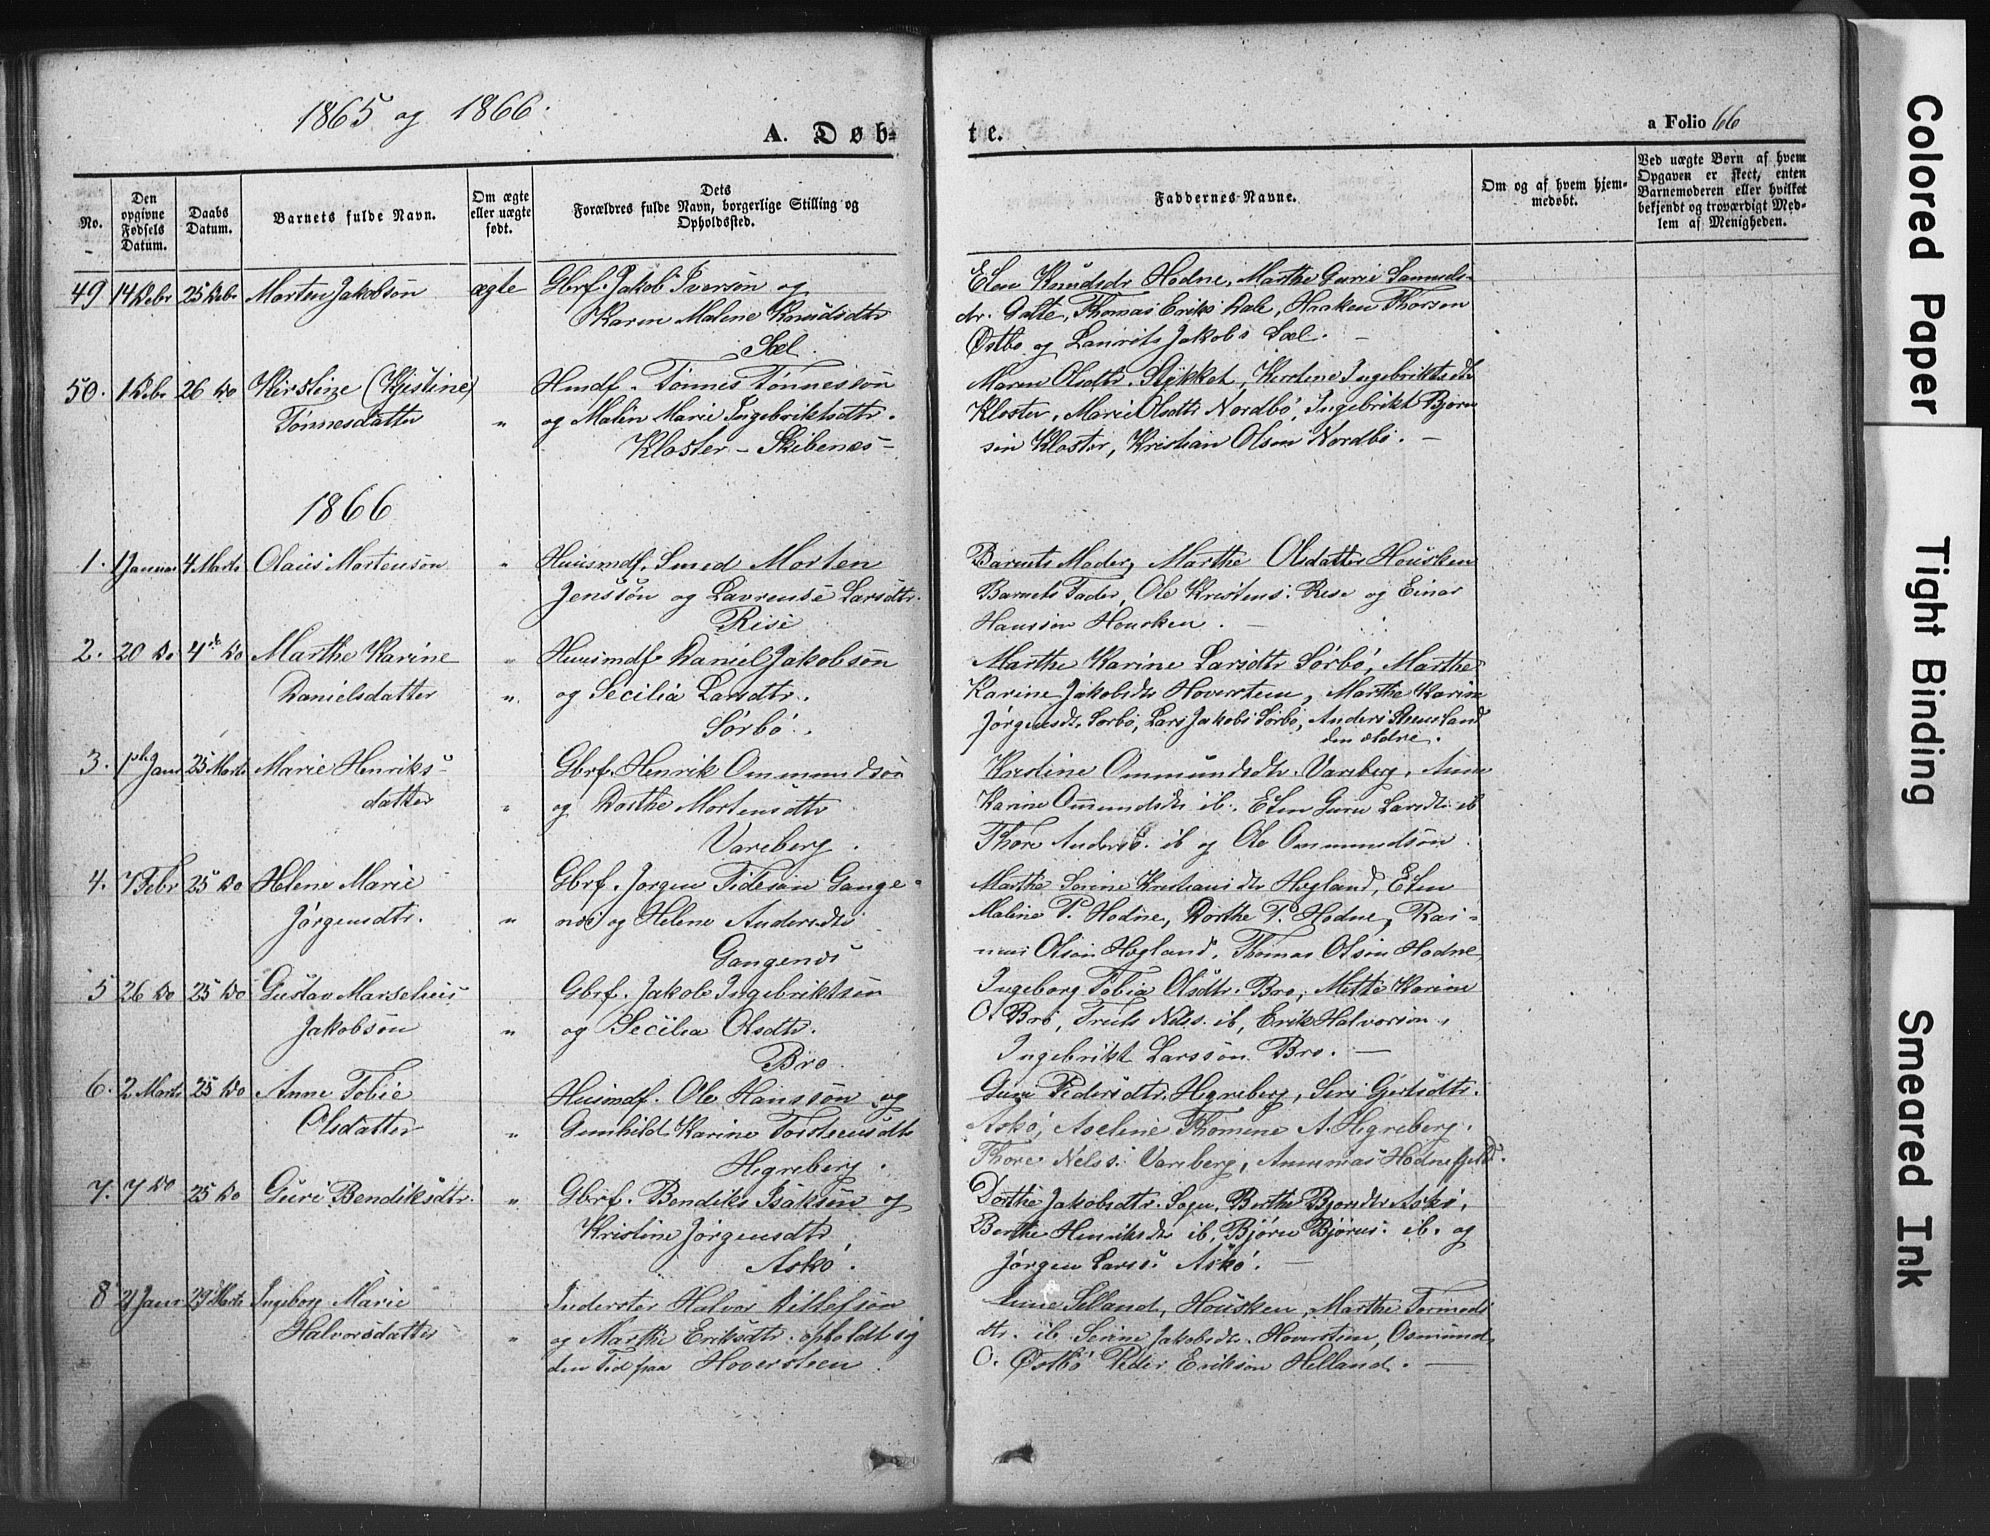 1865 og 1866.
A. Døb-
te.
a Folio 66
No.
Den opgivne Fødsels Datum.
Daabs Datum.
Barnets fulde Navn.
Om ægte eller uægte født.
Dets Forældres fulde Navn, borgerlige Stilling og Opholdssted.
Faddernes Navne.
Om og af hvem hjemmedøbt.
Ved uægte Børn af hvem Opgaven er skeet, enten Barnemoderen eller hvilket bekjendt og troværdigt Medlem af Menigheden.
49 14 Debr 25 Debr Morten Jakobsøn ægte Gbrf. Jakob Iversøn og
Karen Malene Knudsdtr
Sæl.
Elen Knudsdr Hodne, Marthe Gurie Samuels-
dr. Galte, Thomas Eriks Dale, Haaken Thorsen
Østbø og Laurits Jakobs Sæl.
50. 1 Debr 26 Do Kirstine (Kjistine) " Husmdf. Tønnes Tønnessøn
Tønnesdatter og Malin Marie Ingebriktsdtr.
Kloster - Skibenæs -
Maren Olsdtr. Stykket, Kirstine Ingebriktsdtr
Kloster, Marie Olsdtr Nordbø, Ingebrikt Bjørn
sen Kloster, Kristian Olsen Nordbø. -
1866
1. 1 Januar 4 Marts Olaus Mortensøn " Huusmdf. Smed Morten
Jenssøn og Lavrense Larsdtr.
Rise
Barnets Moder, Marthe Olsdatter Housken
Barnets Fader, Ole Kristens. Rise og Einar
Hanssøn Housken. -
2. 20 Do 4de Do Marthe Karine " Huusmdf Daniel Jakobsøn
Danielsdatter " og Secilia Larsdtr.
Sørbø.
Marthe Karine Larsdtr Sørbø, Marthe
Karine Jakobsdtr Hoversteen, Marthe Karine
Jørgensdtr Sørbø, Lars Jakobs Sørbø, Anders
den ældre.
3. 1ste Janr 25 Marts Marie Henriks- Gbrf. Henrik Ommundsøn
datter " og Dorthe Mortensdtr
Vareberg.
Kristine Ommundsdtr. Vareberg, Anne
Karine Ommundsdtr ib. Elen Guru Larsdtr ib
Thore Anders. ib og Ole Ommundsøn
4. 7 Febr 25 Do Helene Marie Gbrf. Jørgen Tidesøn Gange-
Jørgensdtr. " næs og Helene Andersdtr
Gangenæs
Marthe Serine Kristiansdtr Hegland, Elen
Malene P. Hodne, Dorthe P. Hodne, Ras-
mus Olsøn Hegland, Thomas Olsøn Hodne
5 26 Do 25 Do Gustav Marselius Gbrf. Jakob Ingebriktsen
Jakobsøn " og Secilia Olsdtr.
Bro
Ingeborg Tobia Olsdtr. Bro, Mette Karine
O. Brø, Truls Nels. ib, Erik Halvorsøn,
Ingebrikt Larssøn Bro. -
6. 2 Marts 25 Do Anne Tobie Husmdf. Ole Hanssøn og
Olsdatter " Gunhild Karine Torsteensdtr
Hegreberg.
Guri Pedersdtr. Hegreberg, Siri Gjertsdtr.
Askø, Aseline Thomine A. Hegreberg,
Thore Nelss. Vareberg, Hodnefjeld.
7. 7 Do 25 Do Guri Bendiksdtr. " Gbrf. Bendiks Isaksøn og
Kristine Jørgensdtr
Askø.
Dorthe Jakobsdtr. Sogn, Berthe Bjørnsdtr Askø,
Berthe Henriksdtr ib, Bjørn Bjørns. ib. og
Jørgen Larss. Askø. -
8 21 Janr 29 Marts Ingeborg Marie Inderster Halvor Ditlefsøn
Halvorsdatter " og Marthe Eriksdtr. opholdt sig
den Tid paa Hoversteen.
Anne Selland, Housken, Marthe Tormods
dtr. ib. Serine Jakobsdtr. Hoversteen, Osmund
O. Østbø Peder Eriksøn Helland. -
Colored Paper
Tight Binding
Smeared Ink